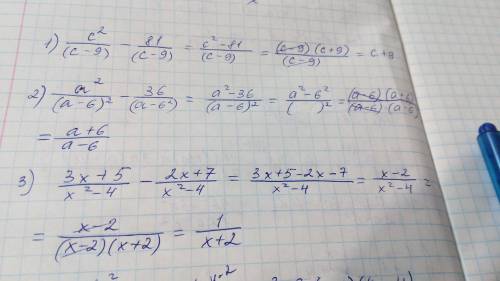 1) c²/(c-9) - 81/(c-9) = c²-81/(c-9) = (c-9)(c+9)/(c-9) = c+9
2) a²/(a-6)² - 36/(a-6²) = a²-36/(a-6)² = a²-6²/( )² = (a-6)(a+6)/(a-6)(a-6)
= a+6/a-6
3) 3x+5/x²-4 - 2x+7/x²-4 = 3x+5-2x-7/x²-4 = x-2/x²-4 =
= x-2/(x-2)(x+2) = 1/x+2